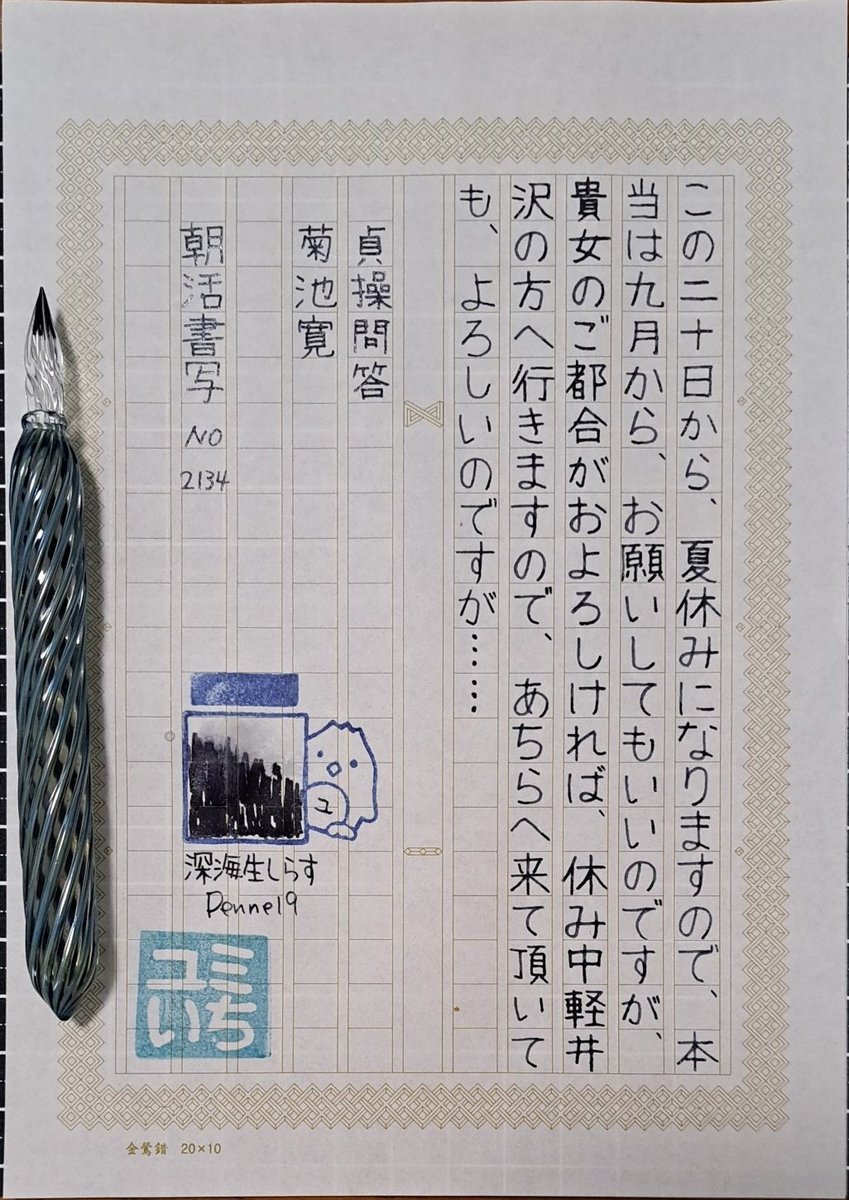 この二十日から、夏休みになりますので、本
当は九月から、お願いしてもいいのですが、
貴女のご都合がおよろしければ、休み中軽井
沢の方へ行きますので、あちらへ来て頂いて
も、よろしいのですが……
貞操問答
菊池寛
朝活書写 NO 2134
ユ
深海生しらす
Penne19
ユミ
いち
金鶯錯 20×10